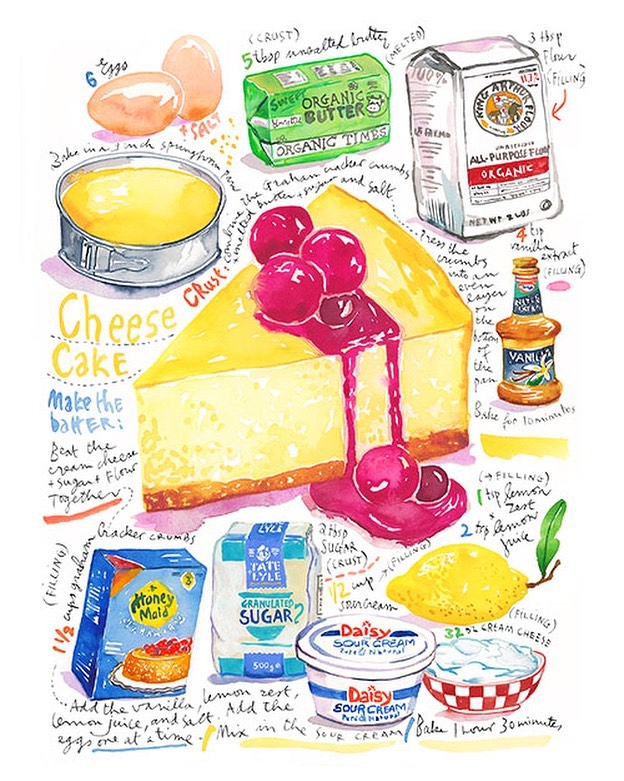 6 Eggs
+ SALT
(CRUST)
5 tbsp unsalted butter
(MELTED)
SWEET
ORGANIC
BUTTER
ORGANIC TIMES
100%
KING ARTHUR FLOUR
ALL-PURPOSE FLOUR
ORGANIC
NET WT 2 LBS
3 tbsp
Flour
(FILLING)
Bake in a 9 inch springform pan
CRUST: combine the Graham cracker crumbs
melted butter, sugar and salt
Press the
crumbs
into an
even
layer
on
the
bottom
of
the
pan
Bake for 10 minutes
4 tsp
vanilla
extract
(FILLING)
VANILLA
Cheese
CAKE
Make the
batter:
Beat the
cream cheese
+ sugar + Flour
Together
(→ FILLING)
1 tsp lemon
zest
2 tsp lemon
juice
(FILLING)
1 1/2 cups graham cracker CRUMBS
Honey
Maid
LYLE
TATE
LYLE
GRANULATED
SUGAR?
500g
2 tbsp
SUGAR
(CRUST)
1/2 cup → (FILLING)
sourcream
Daisy
SOUR CREAM
Pure & Natural
Daisy
SOUR CREAM
Pure & Natural
(FILLING)
32 oz CREAM CHEESE
Add the vanilla, lemon zest,
lemon juice, and salt. Add the
eggs one at a time.
Mix in the SOUR CREAM
Bake 1 hour 30 minutes